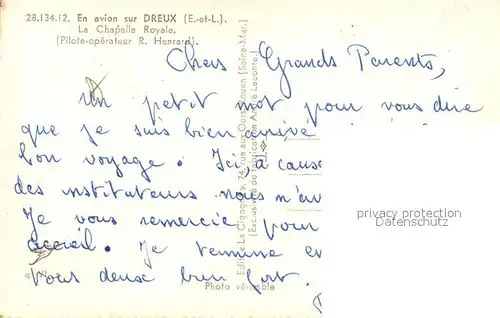 28.134.12. En avion sur DREUX (E.-et-L.).
La Chapelle Royale.
(Pilote-opérateur R. Henrard).
Chers Grands Parents,
Un petit mot pour vous dire
que je suis bien arrivé
bon voyage. Ici, à cause
des instituteurs nous n'av
Je vous remercie pour
accueil. Je termine en
vous deux bien fort.
privacy protection
Datenschutz
Photo véritable